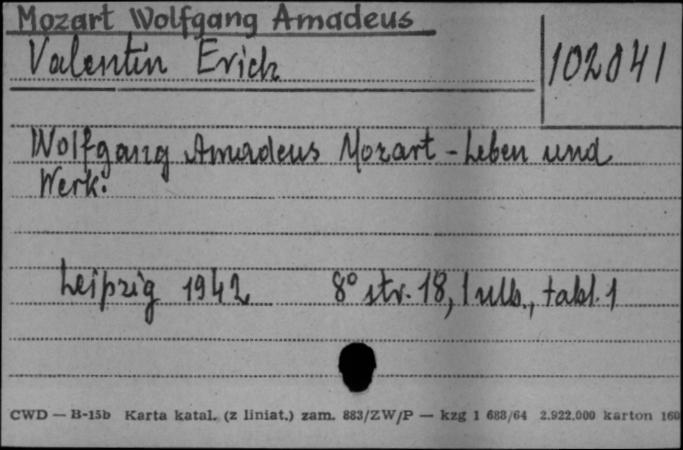 Mozart Wolfgang Amadeus
Valentin Erich
102041
Wolfgang Amadeus Mozart - Leben und
Werk.
Leipzig 1942 8° str. 18, 1 nlb., tabl. 1
CWD — B-15b Karta katal. (z liniat.) zam. 883/ZW/P — kzg 1 688/64 2.922.000 karton 160